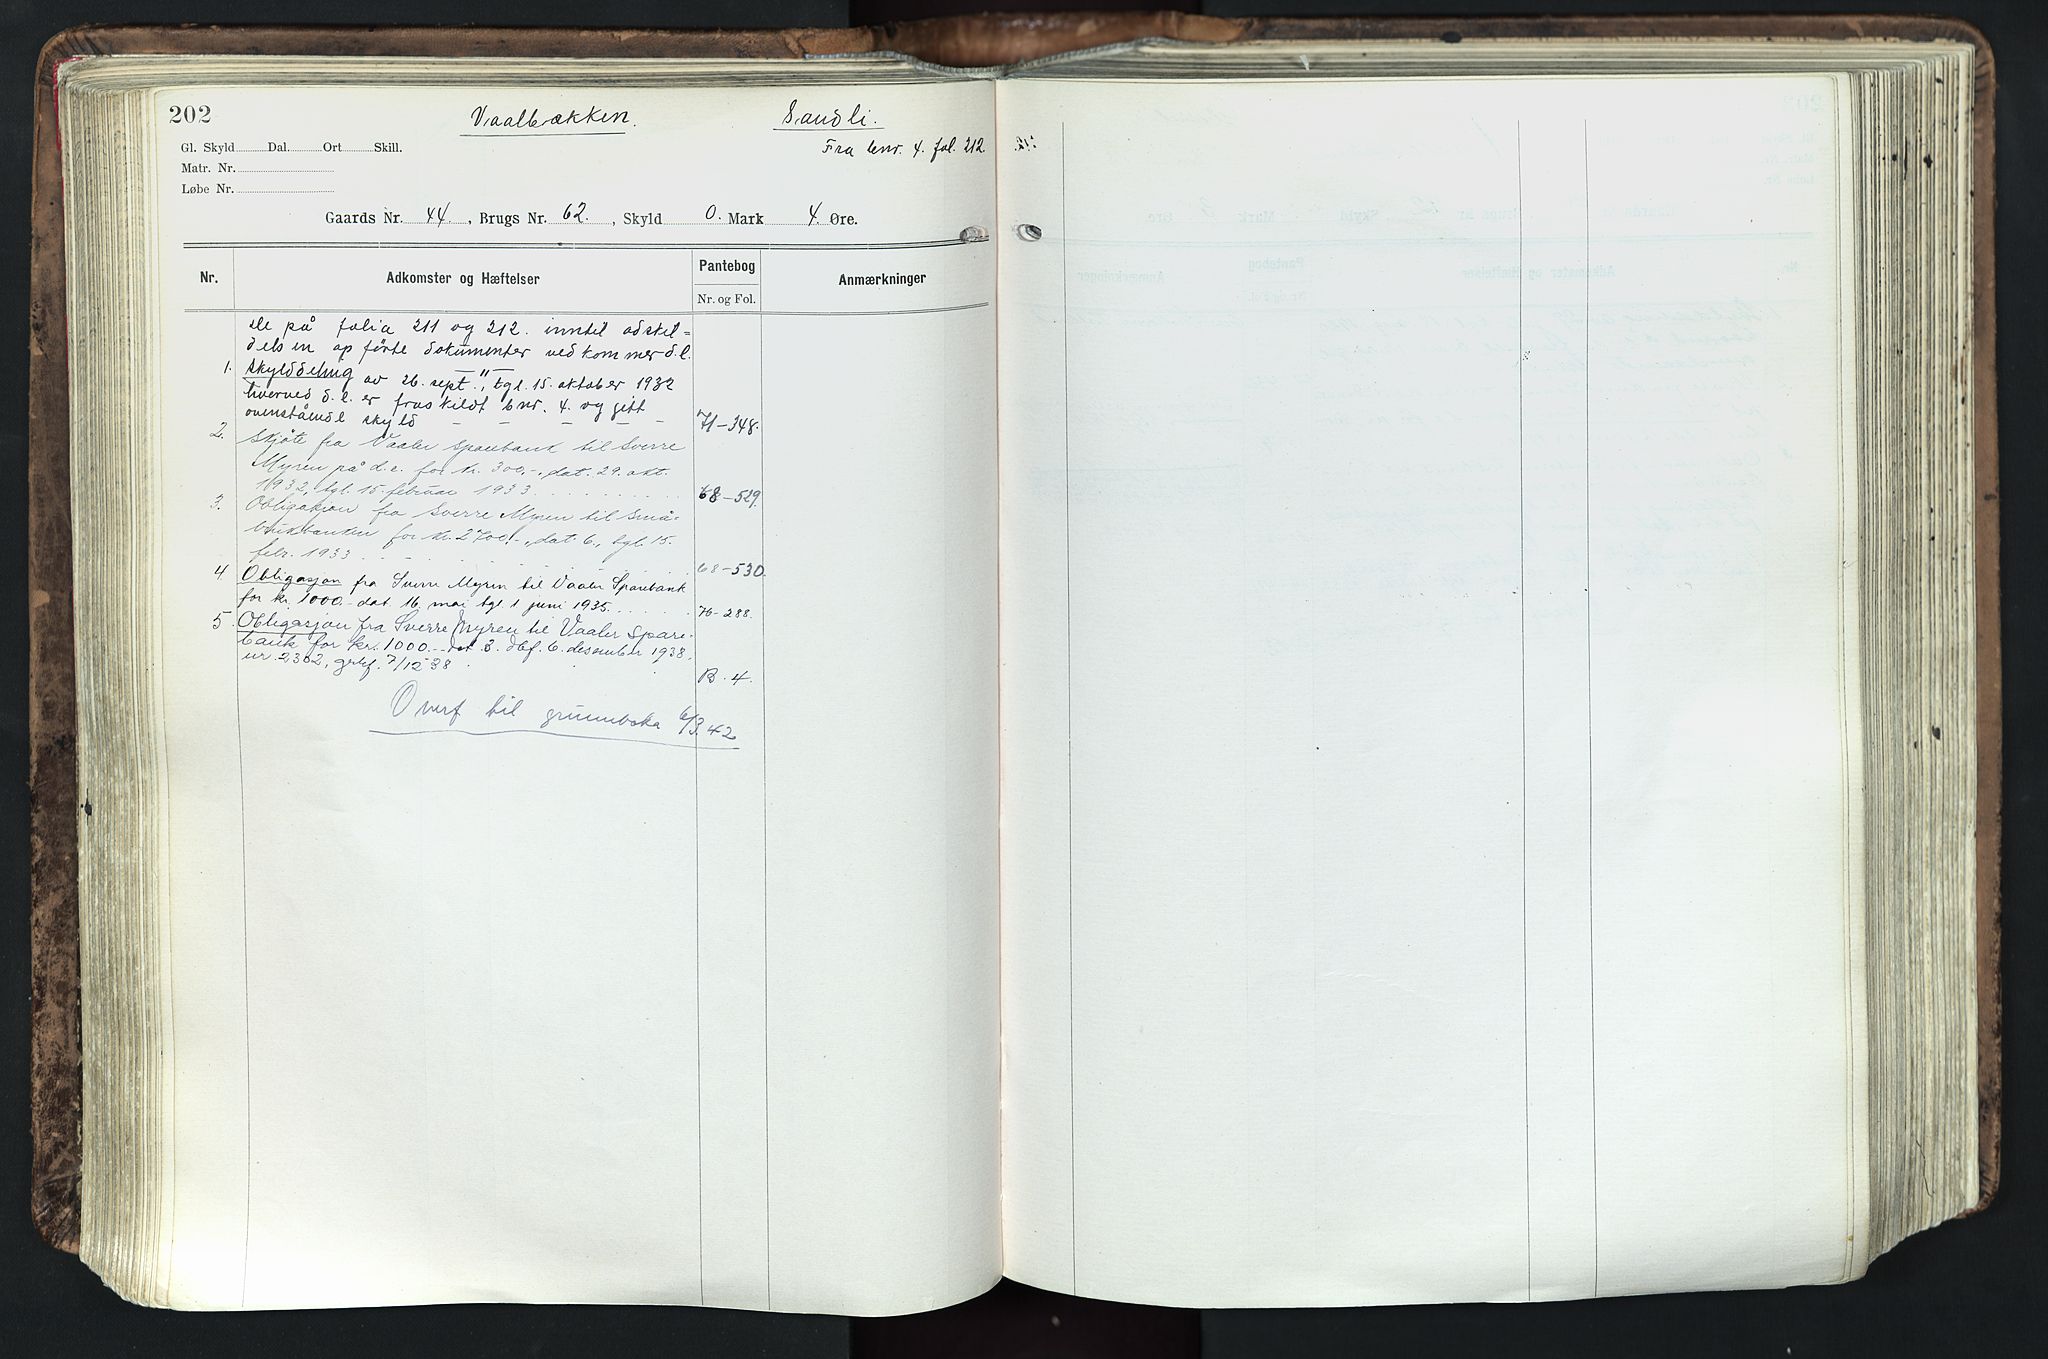 202
Vaalbækken. Sandli.
Fra bnr. 4. fol. 212
Gl. Skyld Dal. Ort Skill.
Matr. Nr.
Løbe Nr.
Gaards Nr. 44. , Brugs Nr. 62. , Skyld 0. Mark 4. Øre.
Nr. Adkomster og Hæftelser Pantebog Anmærkninger
Nr. og Fol.
De på folia 211 og 212. inntil adskil=
delsen op førte dokumenter vedkommer d.e.
1. Skylddeling av 26. sept. ", tgl. 15. oktober 1932
hvorved d.e. er fraskildt bnr. 4. og gitt
ovenstående skyld - - - - - 71-348.
2. Skjøte fra Vaaler Sparebank til Sverre
Myren på d.e. for kr. 300,-, dat. 29. okt.
1932, tgl. 15. februar 1933. 68-529.
3. Obligasjon fra Sverre Myren til Små-
bruksbanken for kr. 2700,-, dat. 6., tgl. 15.
febr. 1933 68-530.
4. Obligasjon fra Sverre Myren til Vaaler Sparebank
for kr. 1000.- dat 16. mai tgl. 1 juni 1935. 76-288.
5. Obligasjon fra Sverre Myren til Vaaler Spare-
bank for kr. 1000.- dat 3. dbf. 6. desember 1938,
nr. 2302, 7/12-38 B. 4.
Overf til grunnboka 6/3.42